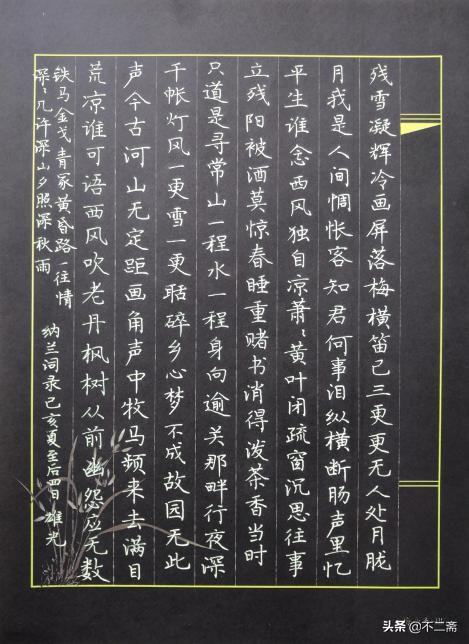 残雪凝辉冷画屏落梅横笛已三更更无人处月胧
月我是人间惆怅客知君何事泪纵横断肠声里忆
平生谁念西风独自凉萧〻黄叶闭疏窗沉思往事
立残阳被酒莫惊春睡重赌书消得泼茶香当时
只道是寻常山一程水一程身向逾关那畔行夜深
千帐灯风一更雪一更聒碎乡心梦不成故园无此
声今古河山无定距画角声中牧马频来去满目
荒凉谁可语西风吹老丹枫树从前幽怨应无数
铁马金戈青冢黄昏路一往情
深〻几许深山夕照深秋雨
纳兰词录己亥夏至后四日 雄光
头条 @不二斋